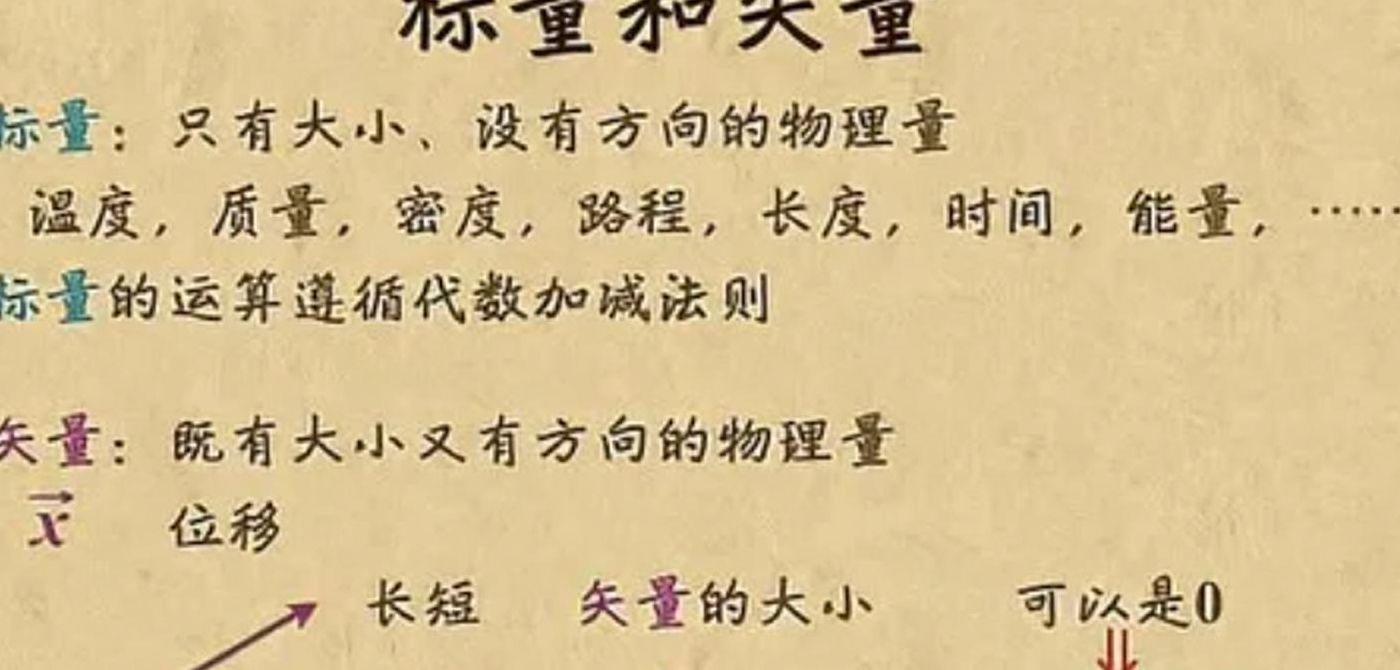 标量和矢量
标量：只有大小、没有方向的物理量
温度，质量，密度，路程，长度，时间，能量，……
标量的运算遵循代数加减法则
矢量：既有大小又有方向的物理量
x⃗ 位移
长短 矢量的大小 可以是0